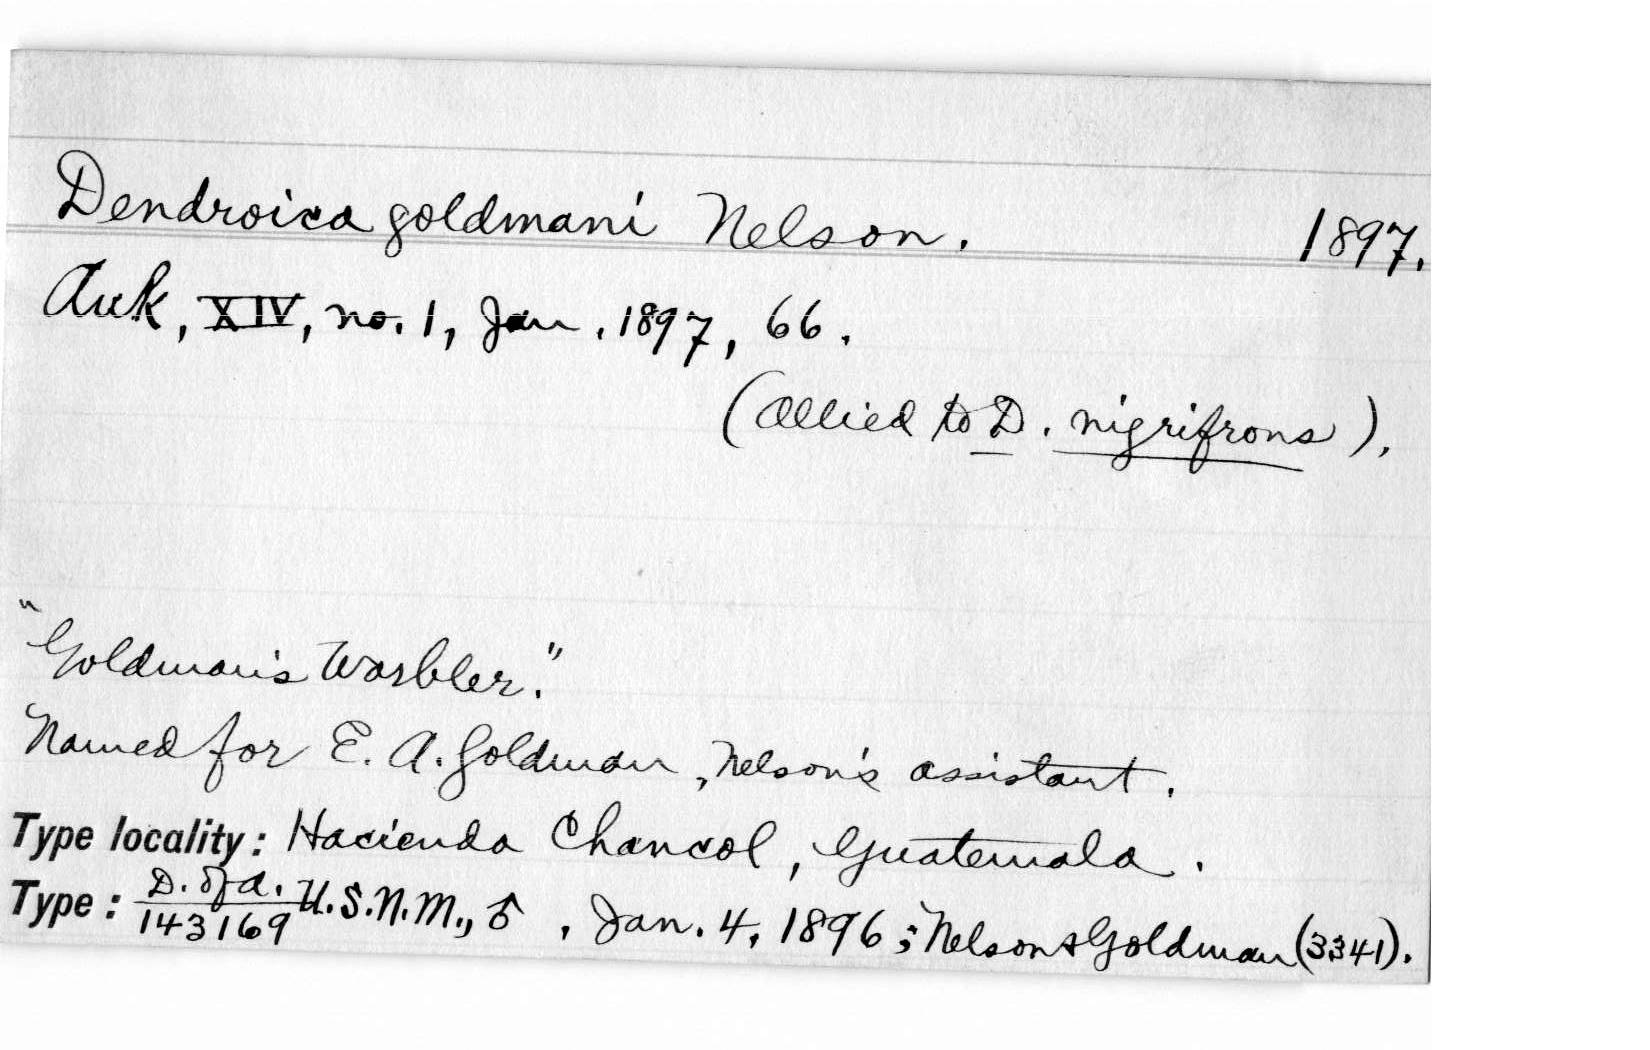 Dendroica goldmani Nelson. 1897.
Auk, XIV, no. 1, Jan. 1897, 66.
(Allied to D. nigrifrons).
"Goldman's Warbler."
Named for E. A. Goldman, Nelson's assistant.
Type locality: Hacienda Chancol, Guatemala.
Type: D. of A. / 143169 U.S.N.M., ♂, Jan. 4, 1896; Nelson & Goldman (3341).